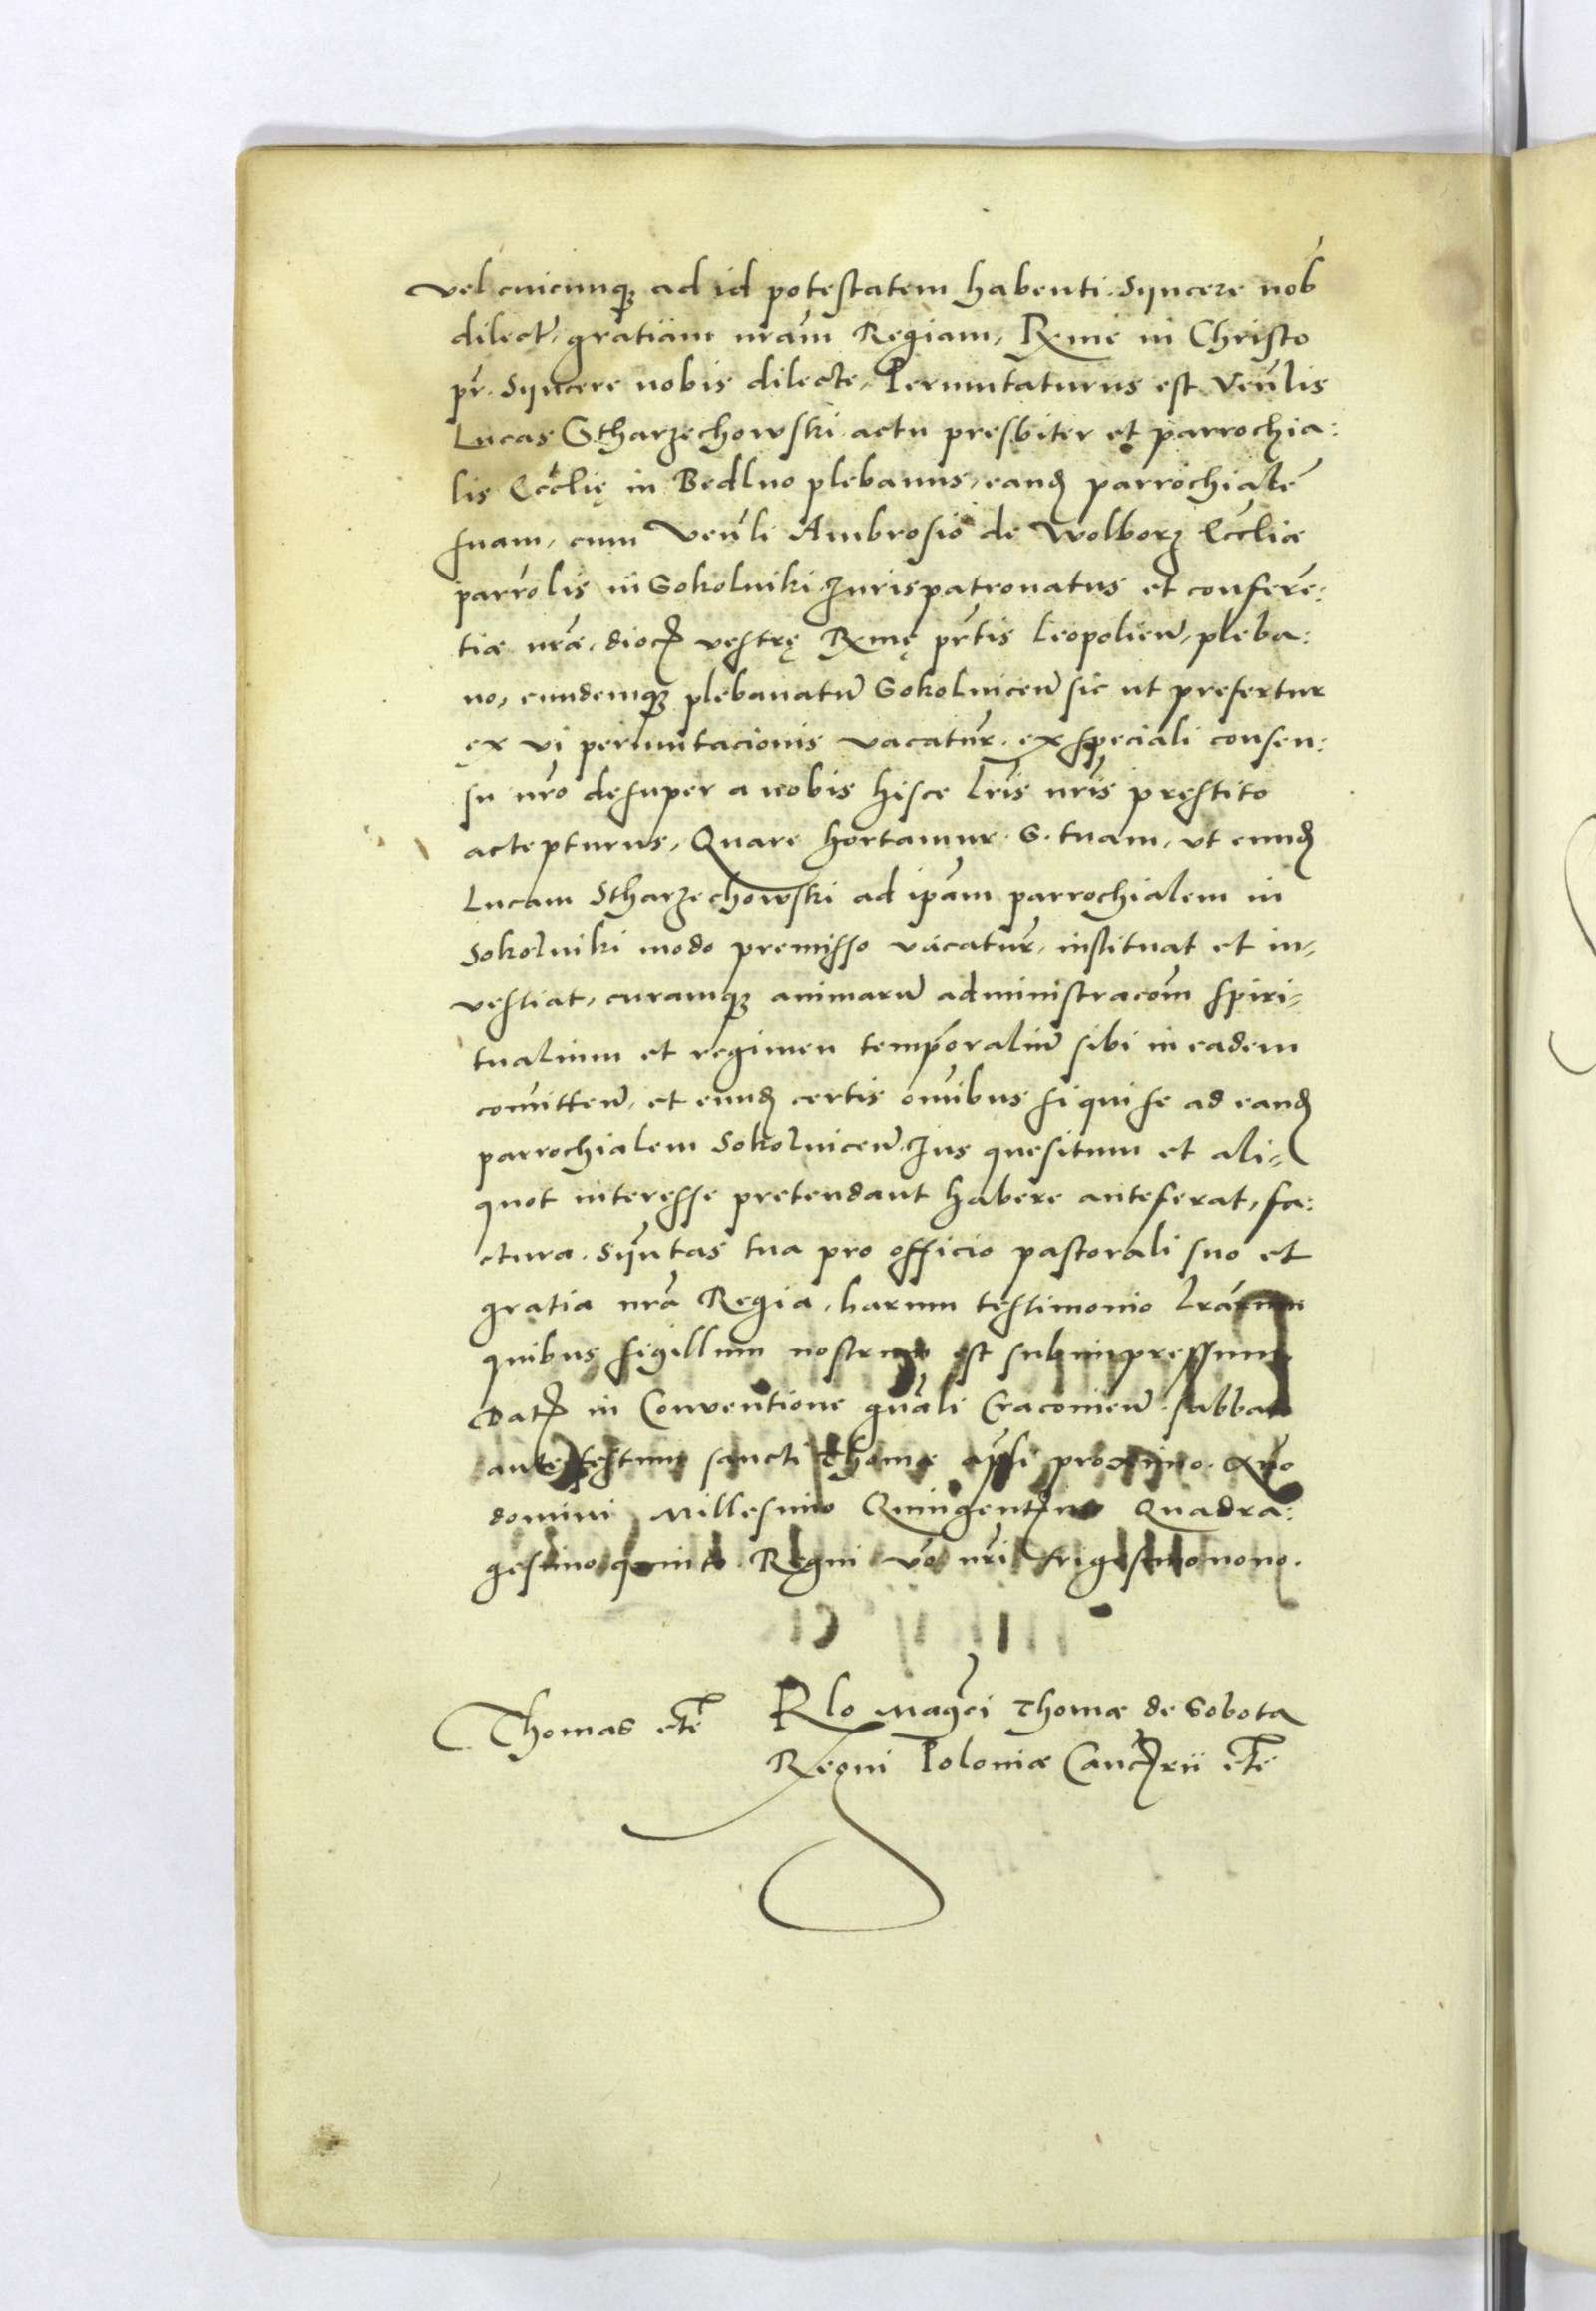 vel cuicunqꝫ ad id potestatem habenti. Syncere nob̃
dilect̃, gratiam nrãm Regiam, Rxme in Christo
pr̃. Syncere nobis dilecte, Permutaturus est Veñlis
Lucas Stharzechowski actu presbiter et parrochia:
lis Eccl̃ię in Bedlno plebanus, eand̃ parrochialẽ
suam, cum Veñli Ambrosio de Wolborz Eccl̃iæ
parr̃olis in Sokolniki Jurispatronatus et conferẽ:
tiæ nr̃æ, dioc̃ vestrę Rxmę pr̃tis Leopolieñ, pleba:
no, eundemqꝫ plebanatũ Sokolniceñ sic ut prefertur
ex vi permutacionis vacatur̃. ex speciali consen:
su nr̃o desuper a nobis hisce l̃ris nr̃is prestito
acteptturus, Quare hortamur. S. tuam, ut eund̃
Lucam Stharzechowski ad ip̃am parrochialem in
Sokolniki modo premisso vacatur̃, instituat et in-
vestiat, curamqꝫ animarũ administracõm spiri-
tualium et regimen temporaliũ sibi in eadem
com̃itteñ, et eund̃ certis om̃ibus si qui se ad eand̃
parrochialem Sokolniceñ Jus quesitum et ali-
quot interesse pretendant habere anteferat, fa:
ctura. Syñtas tua pro officio pastorali suo et
gratia nr̃a Regia, harum testimonio l̃rarum
quibus sigillum nostrum est subimpressum.
Dat̃ in Conventione gñali Cracovieñ. sabbato
ante festum sancti Thomæ ap̃li proximo. Año
domini Millesimo Quingent̃mo Quadra:
gesimo quinto. Regni ṽo nr̃i trigesimonono.
Thomas etc̃ Rlo Mag̃ci Thomæ de Sobota
Regni Poloniæ Canc̃rii etc̃